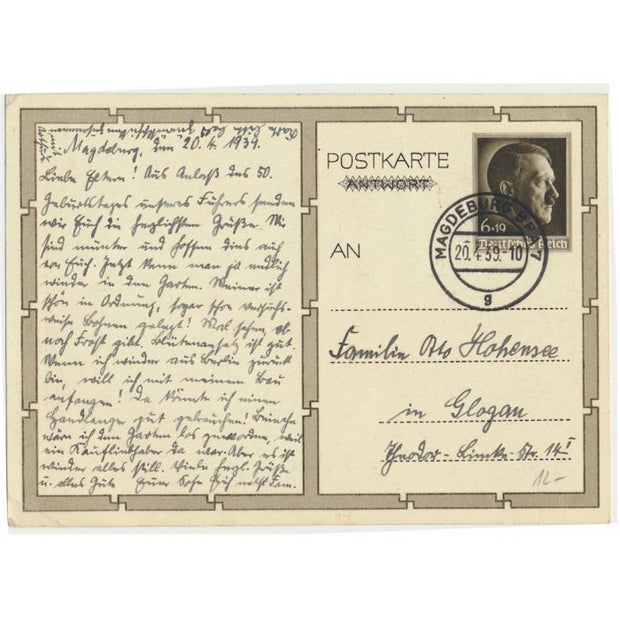 Magdeburg, den 20.4.1939.
Liebe Eltern! Aus Anlaß des 50.
Geburtstages unseres Führers senden
wir Euch die herzlichsten Grüße. Wir
sind munter und hoffen dies auch
von Euch. Jetzt kann man ja endlich
wieder in den Garten. Meiner ist
schön in Ordnung, sogar schon versuchs-
weise Bohnen gelegt! Mal sehen, ob
noch Frost gibt. Blütenansatz ist gut.
Wenn ich wieder aus Berlin zurück
bin, will ich mit meinem Bau
anfangen! Da könnte ich einen
Handlanger gut gebrauchen! Beinahe
wäre ich den Garten los geworden, weil
ein Kaufliebhaber da war. Aber es ist
wieder alles still. Viele herzl. Grüße
u. alles Gute Euer Sohn nebst Fam.
POSTKARTE
ANTWORT
AN
6+19
Deutsches Reich
MAGDEBURG-BF 7
20.4.39.-10
g
Familie Otto Hohensee
in Glogau
Theodor-Limke-Str. 14 I
12.-